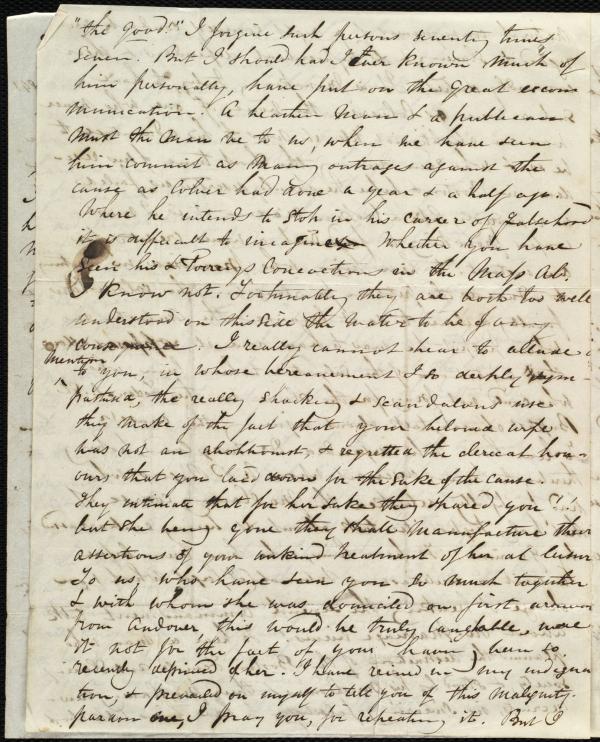 "the good!" I forgive such persons seventy times
seven. But I should had I ever known much of
him personally, have put on the great excom
munication. A heathen man & a publican
must the man be to us, when we have seen
him commit as many outrages against the
cause as Colver had done a year & a half ago.
Where he intends to stop in his career of falsehood
it is difficult to imagine. Whether you have
seen his & Torrey's concoctions in the Mass Ab.
I know not. Fortunately they are both too well
understood on this side the water to be of any
. I really cannot bear to allude
mention
to you, in whose bereavement I so deeply sym-
pathize, the really shocking & scandalous use
they make of the fact that your beloved wife
was not an abolitionist, & regretted the clerical hon-
ours that you laid down for the sake of the cause.
They intimate that for her sake they spared you!!
but she being gone they shall manufacture their
assertions of your unkind treatment of her at leisure
To us, who have seen you so much together
& with whom she was domiciled on first
from Andover this would be truly laughable, were
it not for the fact of your having been so
recently deprived of her. I have reined in my indigna
tion, & prevailed on myself to tell you of this malignity.
pardon me, I pray you, for repeating it. But I